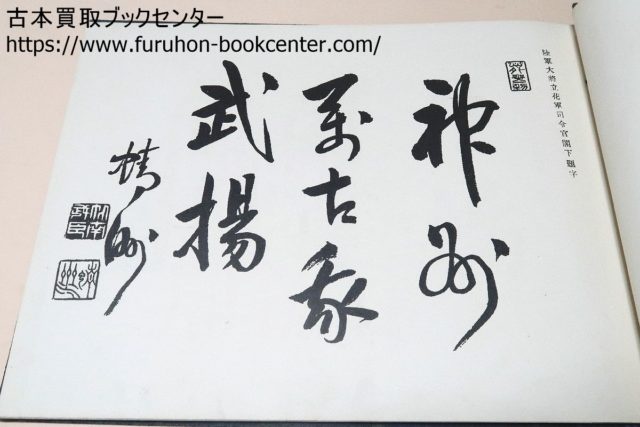 古本買取ブックセンター
https://www.furuhon-bookcenter.com/
陸軍大將立花軍司令官閣下題字
神州
萬古我
武揚